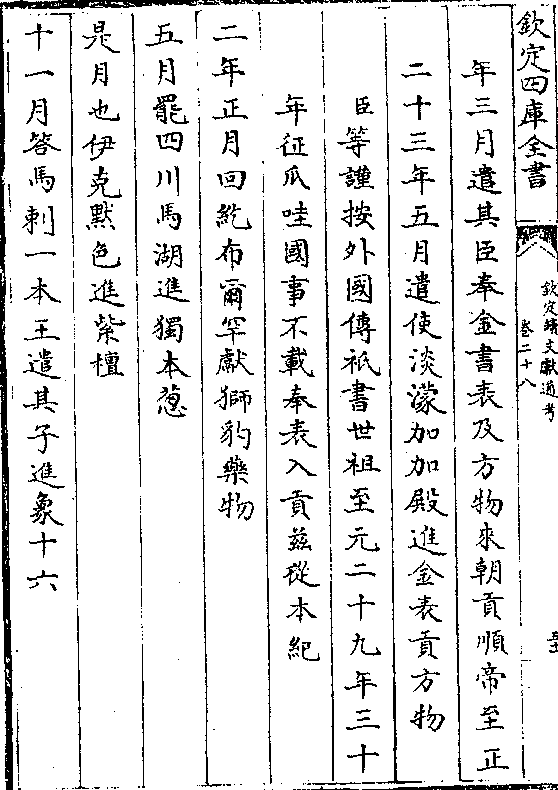 欽定四庫全書
欽定續文獻通考
卷二十八
年三月遣其臣奉金書表及方物來朝貢順帝至正
二十三年五月遣使淡濛加加殿進金表貢方物
臣等謹按外國傳祇書世祖至元二十九年三十
年征爪哇國事不載奉表入貢茲從本紀
二年正月回紇布爾罕獻獅豹藥物
五月罷四川馬湖進獨本蔥
是月也伊克默色進紫檀
十一月答馬剌一本王遣其子進象十六